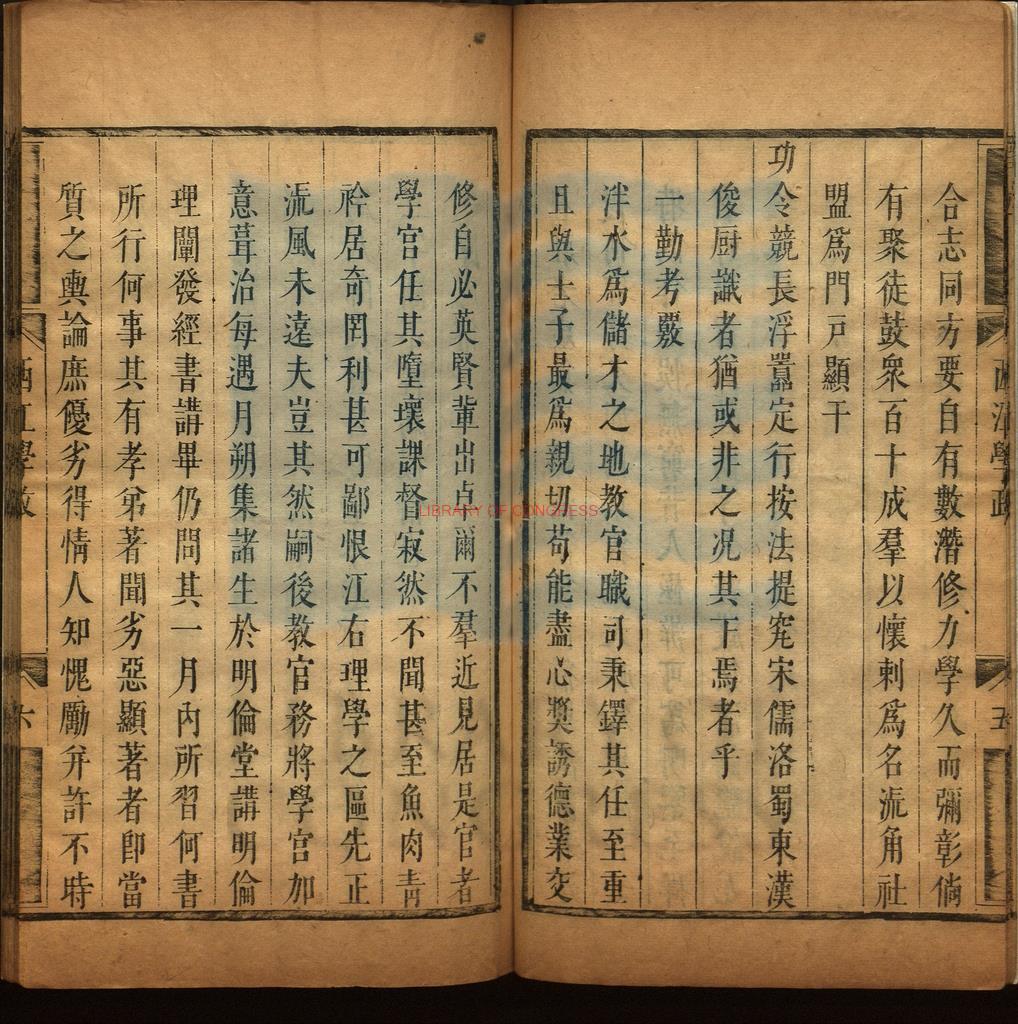 西江學政
五
合志同方要自有數濳修力學久而彌彰倘
有聚徒鼓衆百十成羣以懷刺爲名流角社
盟爲門戸顯干
功令競長浮囂定行按法提究宋儒洛蜀東漢
俊厨識者猶或非之况其下焉者乎
一勤考覈
泮水爲儲才之地教官職司秉鐸其任至重
且與士子最爲親切苟能盡心奬誘德業交
修自必英賢輩出卓爾不羣近見居是官者
學宫任其墮壞課督寂然不聞甚至魚肉青
衿居奇罔利甚可鄙恨江右理學之區先正
流風未遠夫豈其然嗣後教官務將學宫加
意葺治每遇月朔集諸生於明倫堂講明倫
理闡發經書講畢仍問其一月内所習何書
所行何事其有孝弟著聞劣惡顯著者卽當
質之輿論庶優劣得情人知愧勵并許不時
西江學政
六
LIBRARY OF CONGRESS